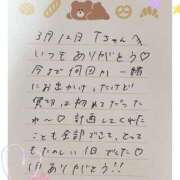 3月12日 Tちゃんへ
いつもありがとう♡
今まで何回か一緒
におでかけしたけど
実は初めてだったか
も〜♡ 計画してくれた
ことも全部できて、とって
もたのしい1日でした♡
ありがとう!!